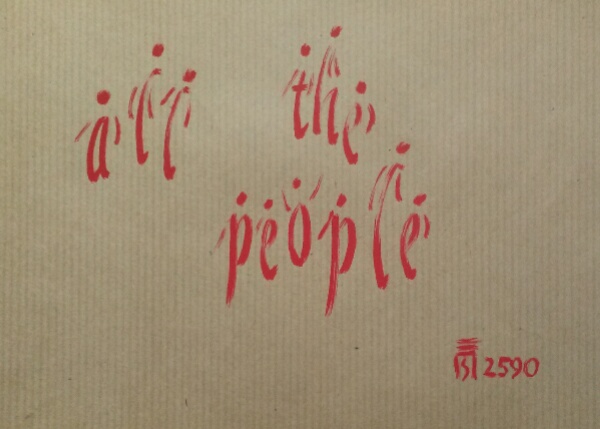 all the
people
2590